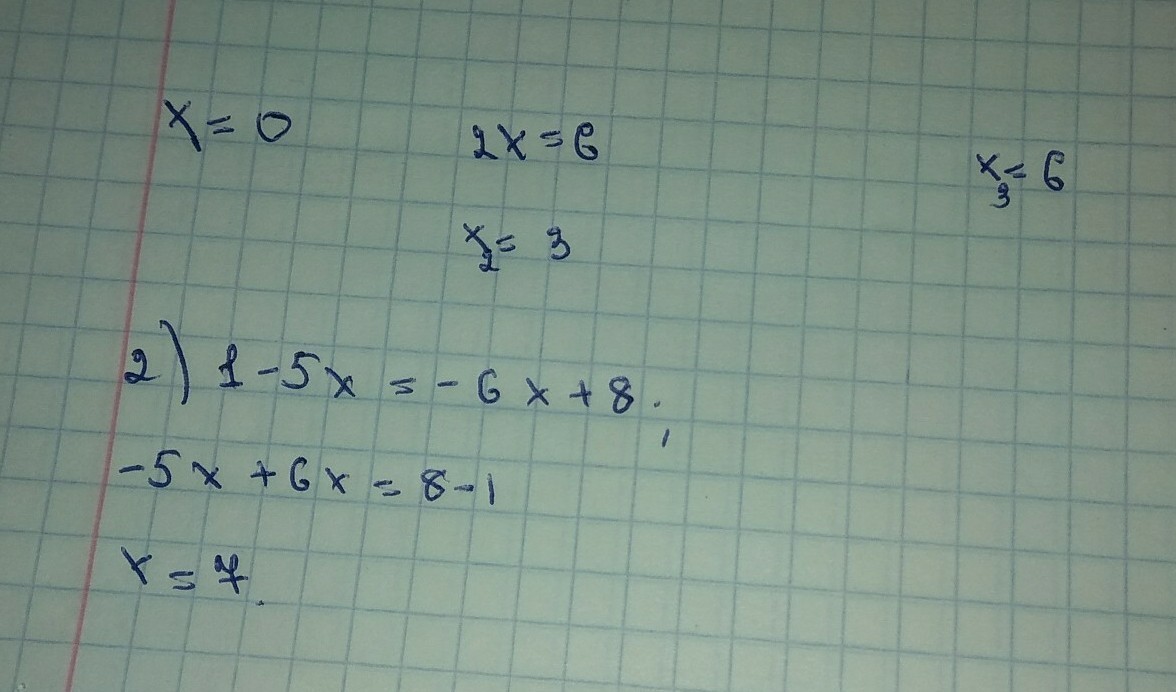 x = 0 2x = 6 x₃ = 6
x₂ = 3
2) 1 - 5x = -6x + 8;
-5x + 6x = 8 - 1
x = 7.